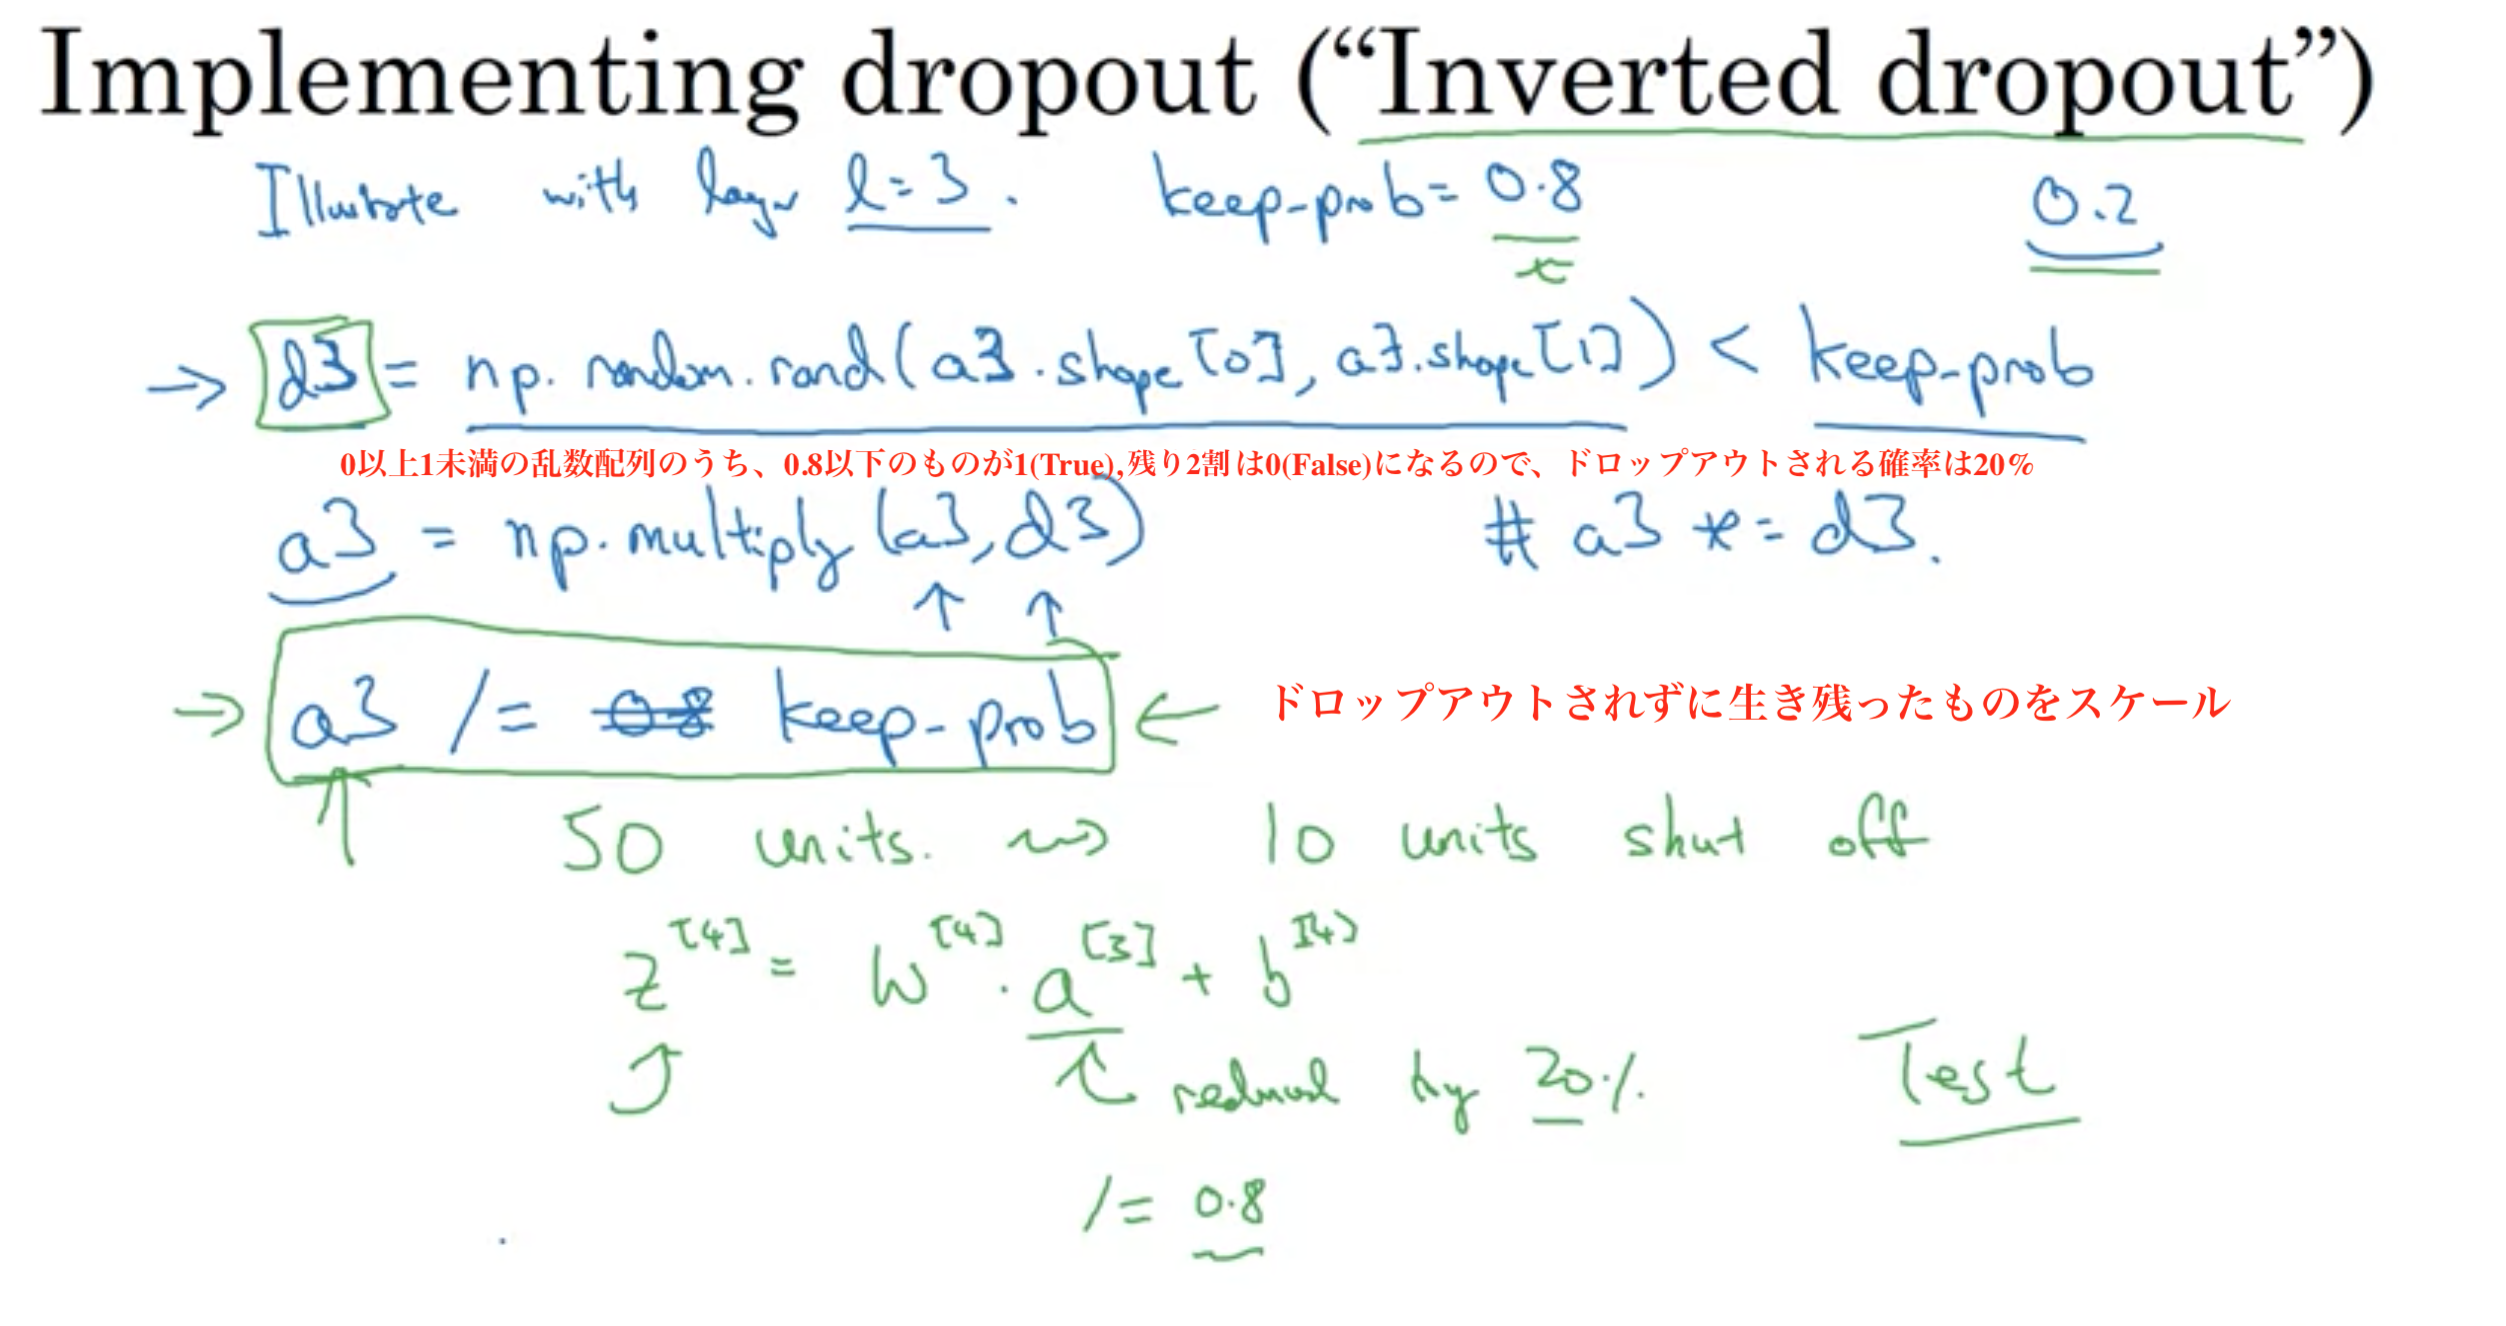 Implementing dropout (“Inverted dropout”)
Illustrate with layer l=3. keep-prob= 0.8 0.2
→ d3 = np.random.rand(a3.shape[0], a3.shape[1]) < keep-prob
0以上1未満の乱数配列のうち、0.8以下のものが1(True),残り2割は0(False)になるので、ドロップアウトされる確率は20%
a3 = np.multiply(a3,d3) # a3 *= d3.
↑ ↑
→ a3 /= 0.8 keep-prob ← ドロップアウトされずに生き残ったものをスケール
50 units. ⇝ 10 units shut off
z[4] = W[4] · a[3] + b[4]
reduced by 20% Test
/= 0.8